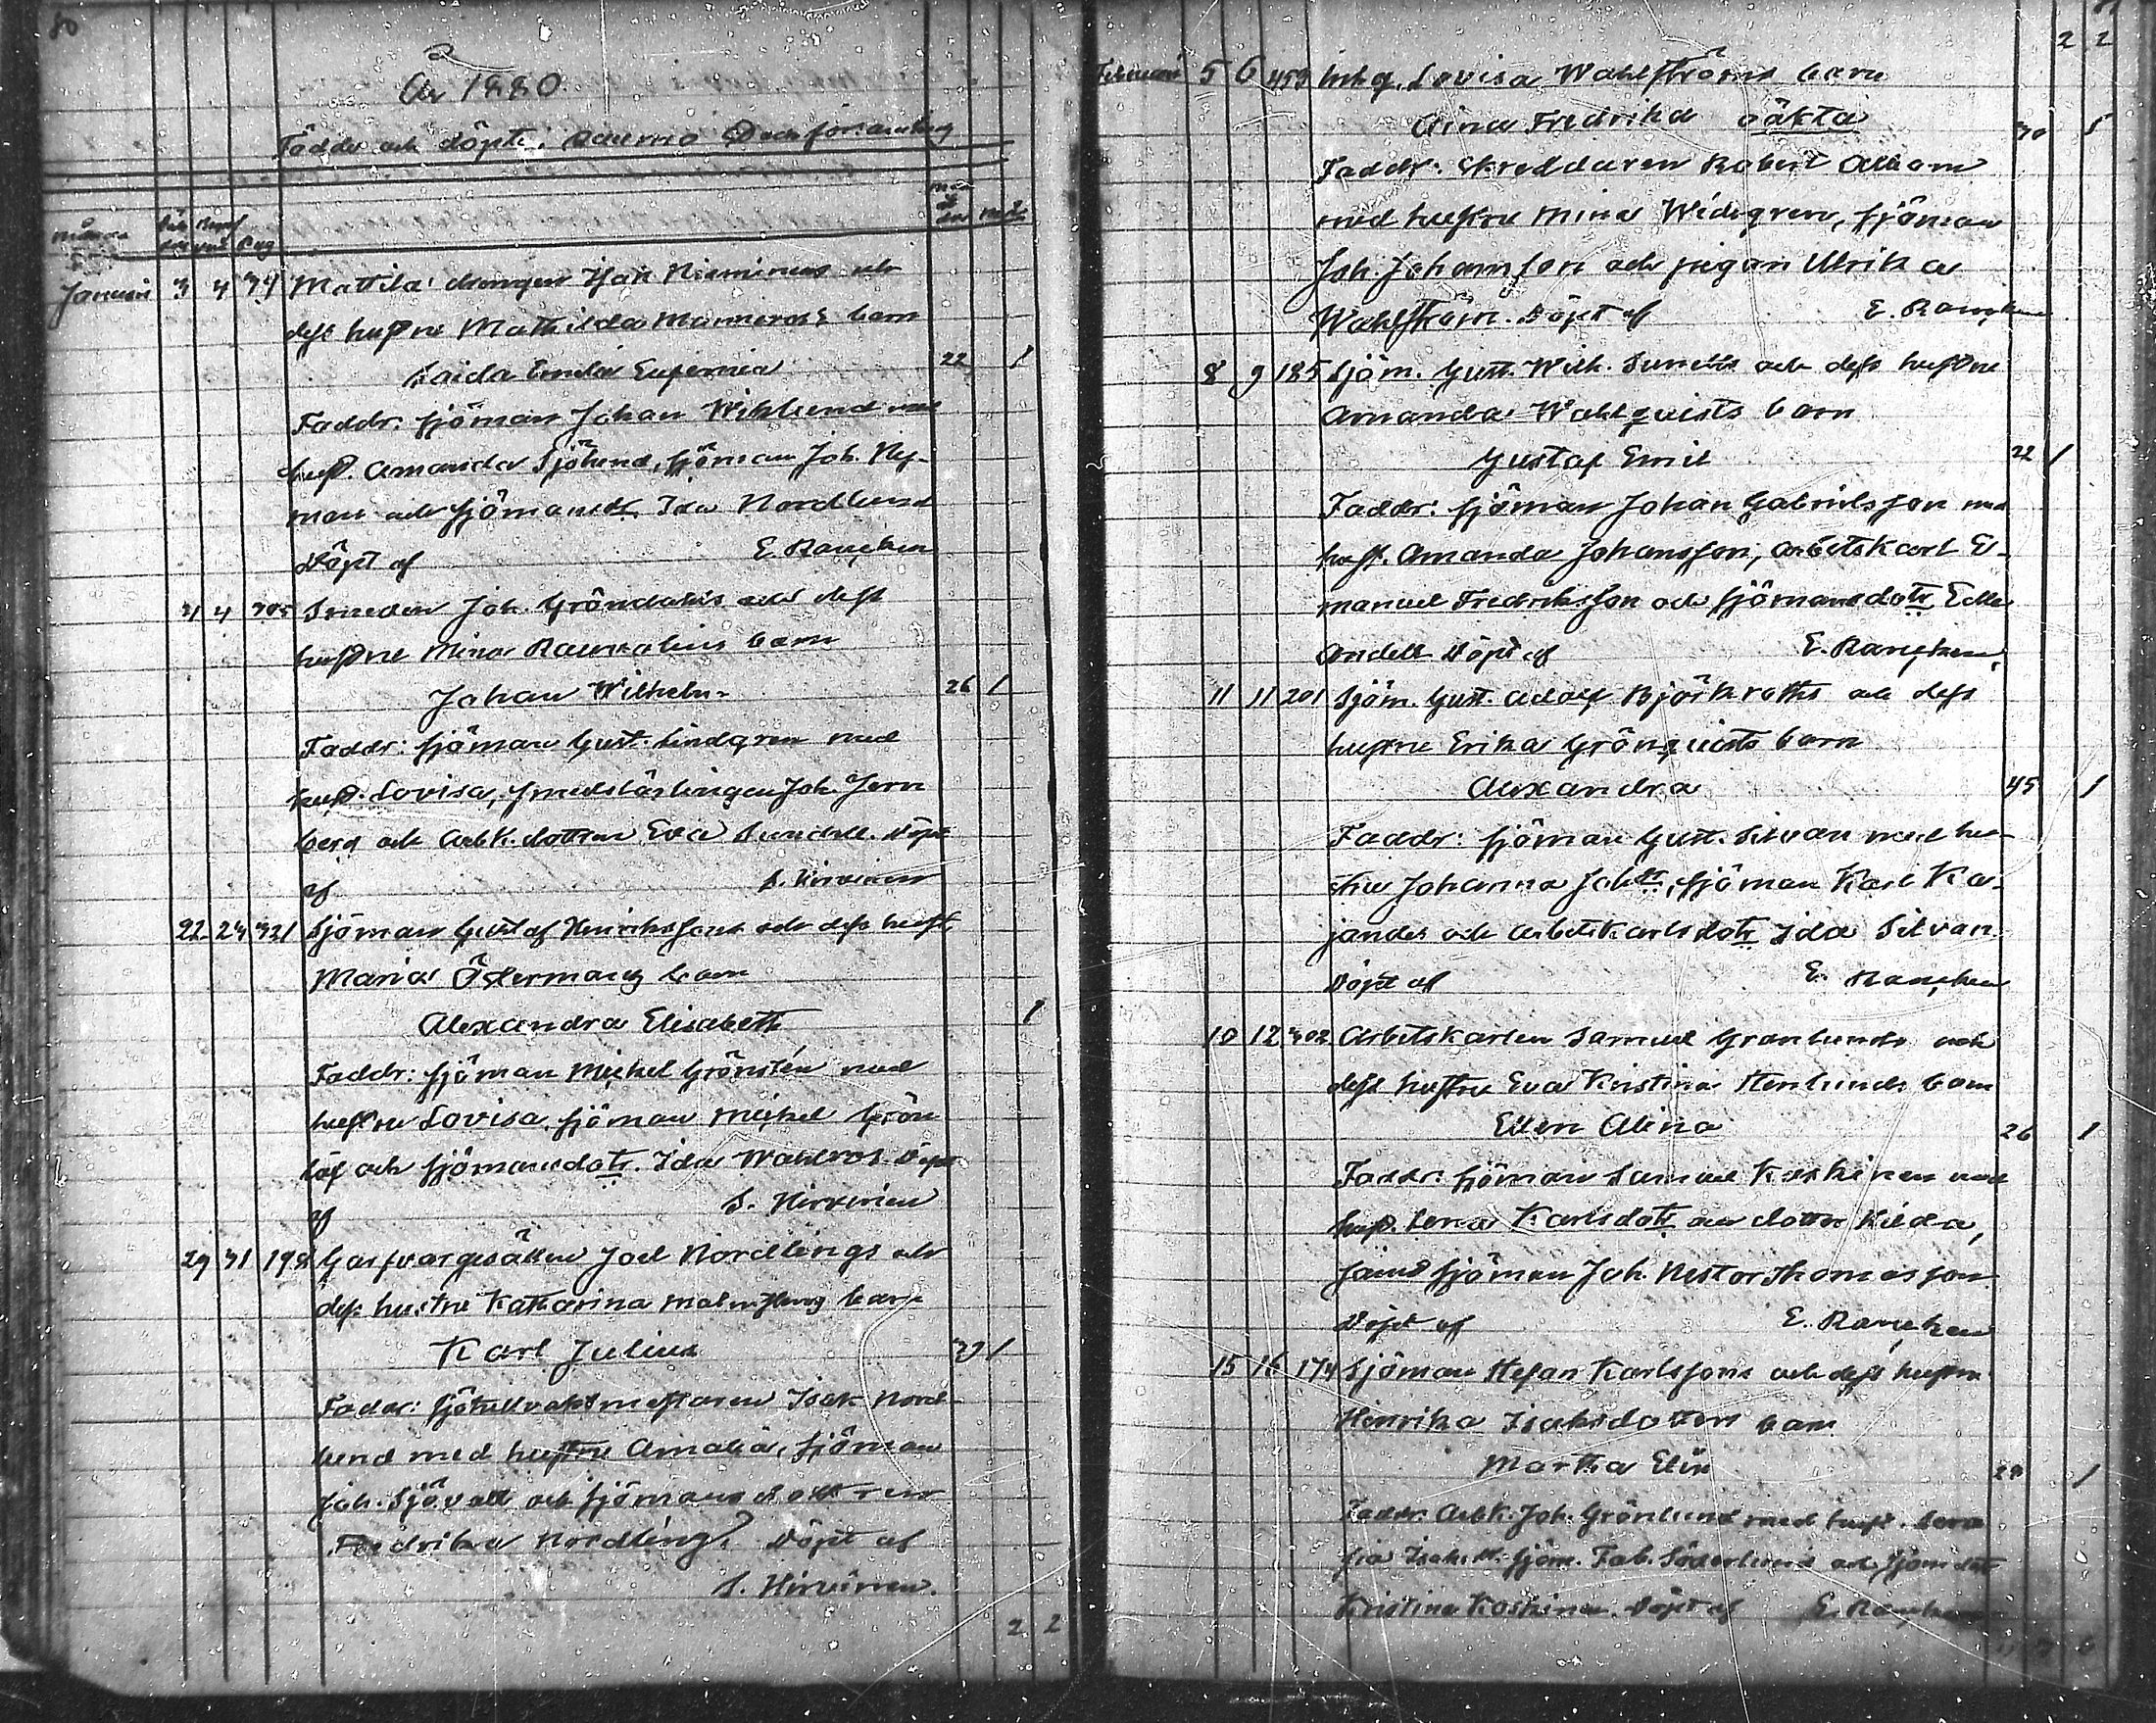 80
År 1880.
Födde och döpte i Raumo Stads församling
Januari 3 4 Mattila drängen Isak Nieminens och
dess hustru Mathilda Manneroos barn
Saida Emilia Eufemia 22 1
Faddr: sjöman Johan Wiklund med
hust. Amanda Sjölund, sjöman Joh. Ny-
man och sjömansdtr. Ida Nordlund
Döpt af E. Rancken
4 305 Smeden Joh. Gröndahls och dess
hustru Mina Raumalins barn
Johan Wilhelm 26 1
Faddr: sjöman Gust. Lindgren med
hust. Lovisa, smedslärlingen Joh. Jern
berg och arbk. dottren Eva Sundell. Döpt
af S. Hirvinen
22 24 321 Sjöman Gustaf Henrikssons och dess hust.
Maria Östermans barn
Alexandra Elisabeth 1
Faddr: sjöman Mickel Grönstén med
hustru Lovisa, sjöman Mickel Grön
löf och sjömansdotr. Ida Wahlros. Döpt
af S. Hirvinen
29 31 198 Garfvargesällen Joel Nordlings och
dess hustru Katharina Malmberg barn
Karl Julius 39 1
Faddr: sjötullvaktmästaren Isak Nord
lund med hustru Amalia, sjöman
Joh. Sjövall och sjömans dottren
Fredrika Nordling. Döpt af
S. Hirvinen.
2 2
2 2
Februari 5 6 459 Inhq. Lovisa Wahlströms barn
Aina Fredrika oäkta 30
Faddr: Skreddaren Robert
med hustru Mina Widegren, sjöman
Joh. Johansson och pigan Ulrika
Wahlström. Döpt af E. Rancken
8 9 185 Sjöm. Gust. Wilh. Sundells och dess hustru
Amanda Wahlquists barn
Gustaf Emil 22 1
Faddr: sjöman Johan Gabrielsson med
hust. Amanda Johansson, arbetskarl E-
manuel Fredriksson och sjömansdotr Edla
Andell Döpt af E. Rancken
11 11 201 Sjöm. Gust. Adolf Björkroths och dess
hustru Erika Grönquists barn
Alexandra 45 1
Faddr: sjöman Gust. Silvan med hu-
stru Johanna Johdtr, sjöman Karl Ka-
jander och arbetskarlsdotr Ida Silvan.
Döpt af E. Rancken
10 12 302 Arbetskarlen Samuel Granlunds och
dess hustru Eva Kristina Stenlunds barn
Ellen Alina 26 1
Faddr: sjöman Samuel Koskinen med
hust. Lena Karlsdotr och dotter Hilda,
samt sjöman Joh. Nestor Thomasson
Döpt af E. Rancken
15 16 174 Sjöman Stefan Karlssons och dess hustru
Henrika Isaksdotters barn
Martha Elin 29 1
Faddr: Arbk. Joh. Grönlund med hust. Sera
fia Isaksdtr. sjöm. Fab. Söderlund och sjömdotr
Kristina Koskinen. Döpt af E. Rancken